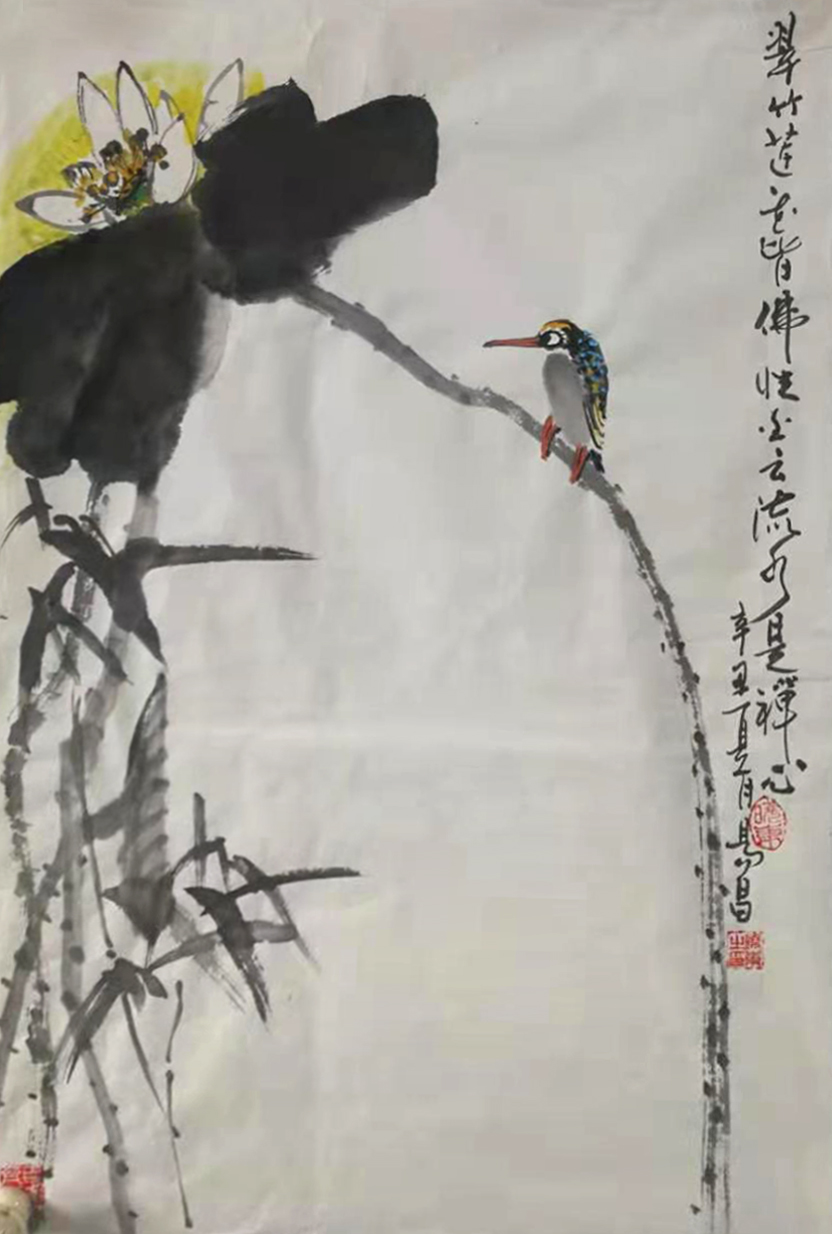 翠竹莲花皆佛性白云流水是禅心
辛丑夏月昌